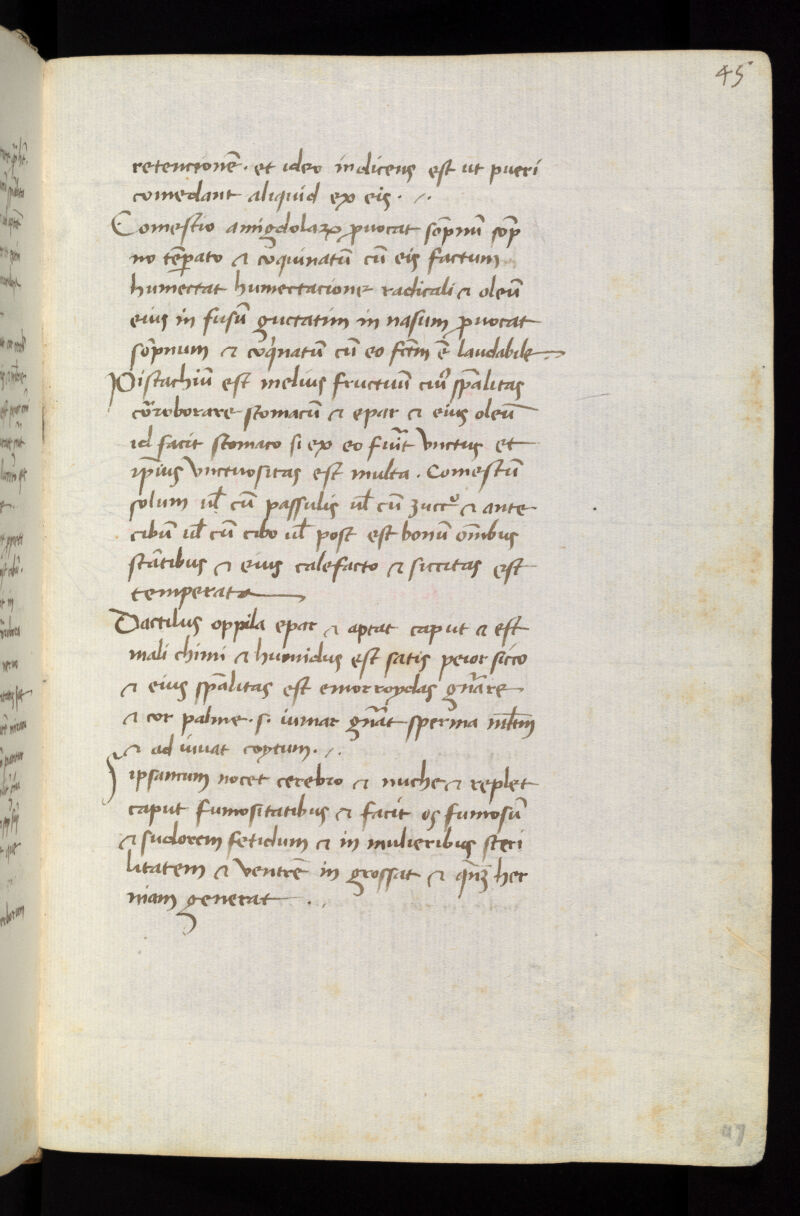 45
retencionē. et ideo indicens est ut pueri
comedant aliquid ex eis.
Comestio amigdolaꝝ ꝓuocat sopnū sop
no tēꝑato ⁊ coquinatū cū eis factum
humectat humectacione radicali ⁊ oleū
eius in fusū guctatim in nasum ꝓuocat
sopnum ⁊ coqͥnatū cū eo fctm ē laudabile
Pistachiū est melius fructuū cuiꝰ spālitas
corroborare stomacū ⁊ epar ⁊ eius oleū
id facit stomaco si ex eo fiūt vnctus et
ip̄ius vnctuositas est multa. Comestū
solum ul̄ cū passulis ul̄ cū zuccͦ ⁊ ante
cibū ul̄ cū cibo ul̄ post est bonū om̄ibus
stātibus ⁊ eius calefacto ⁊ siccitas est
temperata
Dactilus oppila epar ⁊ aptat caput ⁊ est
mali chimi ⁊ humidus est satis peior sicco
⁊ eius spālitas est emorroydas gn̄are
⁊ cor palme .s. iumar gn̄at sperma mltm
⁊ ad iuuat coytum.
ipsancum nocet cerebro ⁊ nuche ⁊ replet
caput fumositatibus ⁊ facit os fumosū
⁊ sudorem fetidum ⁊ in mulieribus steri
litatem ⁊ ventrē in grossat ⁊ qn̄qꝫ her
niam generat
47